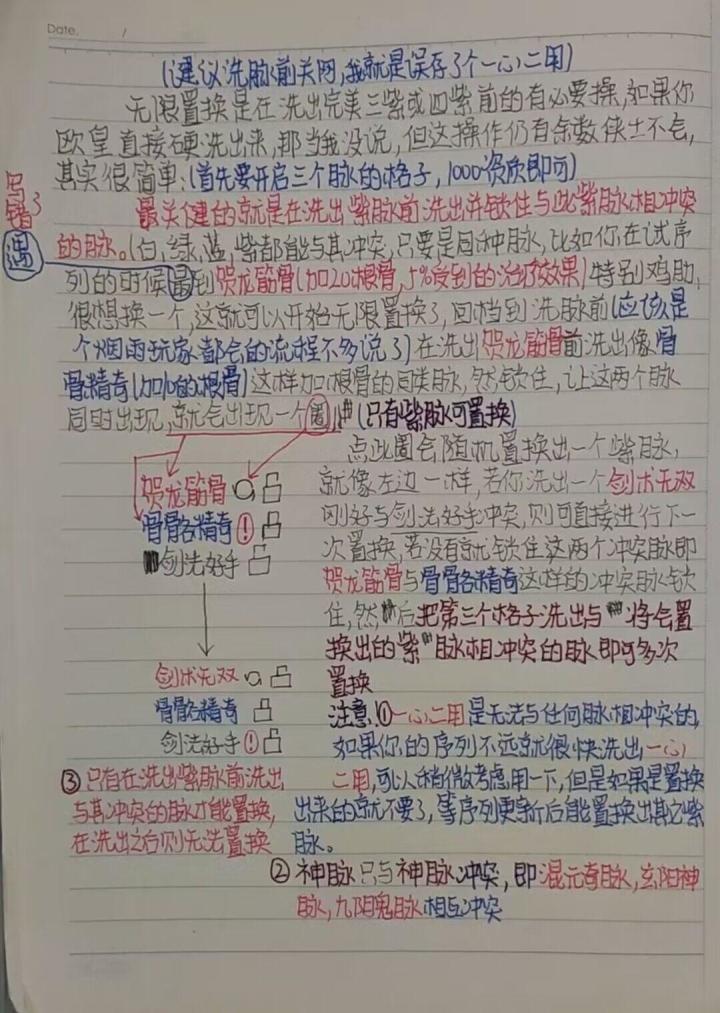 Date. /
(建议洗脉前关网,我就是误存了个一心二用)
无限置换是在洗出完美三紫或四紫前的有必要操,如果你
欧皇直接硬洗出来,那当我没说,但这操作仍有余数侠士不会,
其实很简单:(首先要开启三个脉的格子,1000资质即可)
最关健的就是在洗出紫脉前洗出并锁住与此紫脉相冲突
写错了
的脉。(白,绿,蓝,紫都能与其冲突,只要是同种脉,比如你在试序
遇
列的时候到贺龙筋骨(加20根骨,5%受到的治疗效果)特别鸡肋,
很想换一个,这就可以开始无限置换了,回档到洗脉前(应该是
个烟雨玩家都会的流程不多说了)在洗出贺龙筋骨前洗出像骨
骨精奇(加10的根骨)这样加根骨的同类脉,然锁住,让这两个脉
同时出现,就会出现一个圈,(只有紫脉可置换)
点此圈会随机置换出一个紫脉,
贺龙筋骨
骨骨各精奇!
剑法好手
就像左边一样,若你洗出一个剑术无双
刚好与剑法好手冲突,则可直接进行下一
次置换,若没有就锁住这两个冲突脉即
贺龙筋骨与骨骨各精奇这样的冲突脉锁
住,然后把第三个格子洗出与将会置
换出的紫脉相冲突的脉即可多次
置换
剑术无双
骨骨各精奇
剑法好手!
注意.①一心二用是无法与任何脉相冲突的,
如果你的序列不远就很快洗出一心
二用,可以稍微考虑用一下,但是如果是置换
出来的就不要了,等序列更新后能置换出其它紫
脉。
③只有在洗出紫脉前洗出
与其冲突的脉才能置换,
在洗出之后则无法置换
②神脉只与神脉冲突,即混元奇脉,玄阳神
脉,九阴鬼脉相互冲突